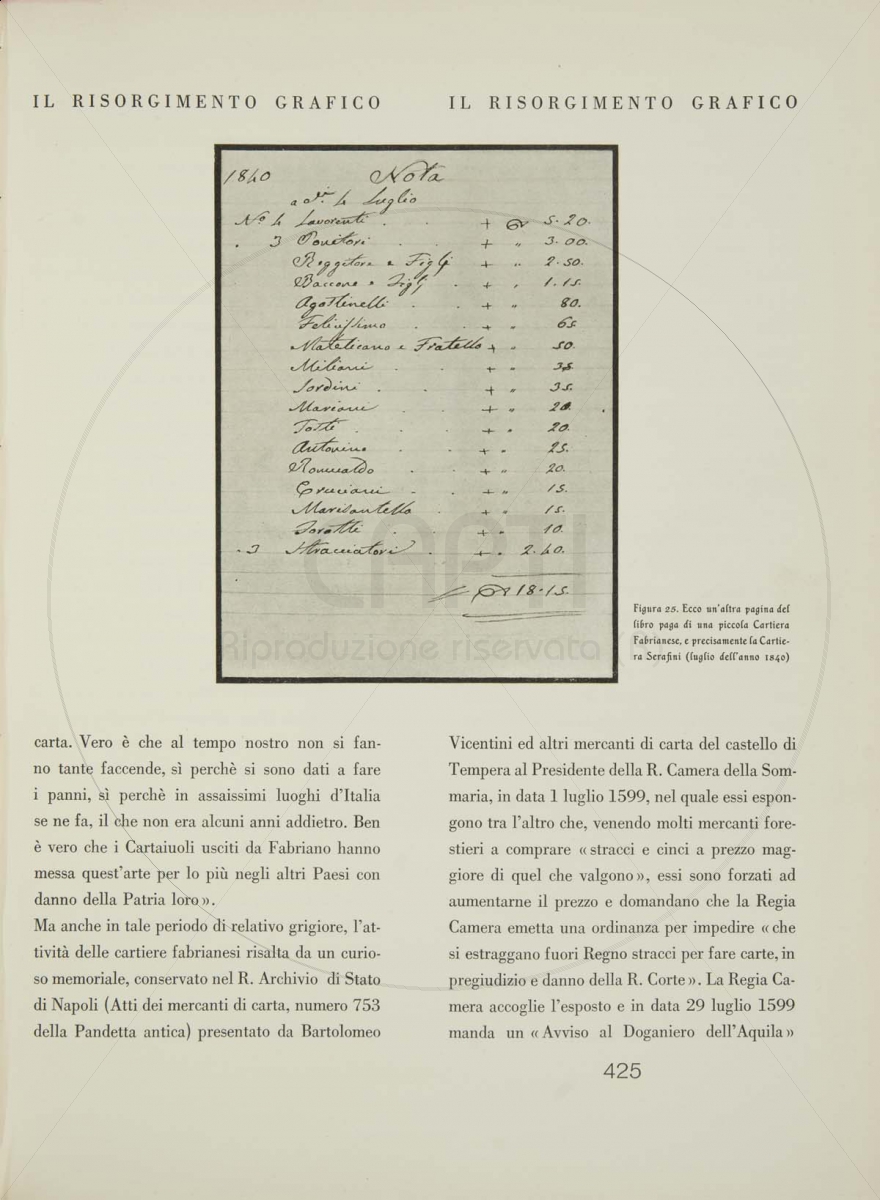 IL RISORGIMENTO GRAFICO
IL RISORGIMENTO GRAFICO
1840 Nota
Luglio
N.º 4 Lavorenti + 5.20.
3 Ponitori + „ 3.00.
Reggitore e Figlj + „ 2.50.
Baccone e Figlj + „ 1.15.
Agostinelli + „ 80.
+ „ 65
Matelicano e Fratello + „ 50.
Miliani + „ 35.
Sordini + „ 35.
Mariani + „ 20.
Totti + „ 20.
Antonino + „ 25.
Romualdo + „ 20.
Cruciani + „ 15.
+ „ 15.
+ „ 10.
3 Stracciatori + „ 2.40.
18.15.
CARTI
Riproduzione riservata
Figura 25. Ecco un'altra pagina del
libro paga di una piccola Cartiera
Fabrianese, e precisamente la Cartie-
ra Serafini (luglio dell'anno 1840)
carta. Vero è che al tempo nostro non si fan-
no tante faccende, sì perchè si sono dati a fare
i panni, sì perchè in assaissimi luoghi d'Italia
se ne fa, il che non era alcuni anni addietro. Ben
è vero che i Cartaiuoli usciti da Fabriano hanno
messa quest'arte per lo più negli altri Paesi con
danno della Patria loro».
Ma anche in tale periodo di relativo grigiore, l'at-
tività delle cartiere fabrianesi risalta da un curio-
so memoriale, conservato nel R. Archivio di Stato
di Napoli (Atti dei mercanti di carta, numero 753
della Pandetta antica) presentato da Bartolomeo
Vicentini ed altri mercanti di carta del castello di
Tempera al Presidente della R. Camera della Som-
maria, in data 1 luglio 1599, nel quale essi espon-
gono tra l'altro che, venendo molti mercanti fore-
stieri a comprare « stracci e cinci a prezzo mag-
giore di quel che valgono», essi sono forzati ad
aumentarne il prezzo e domandano che la Regia
Camera emetta una ordinanza per impedire « che
si estraggano fuori Regno stracci per fare carte, in
pregiudizio e danno della R. Corte». La Regia Ca-
mera accoglie l'esposto e in data 29 luglio 1599
manda un « Avviso al Doganiero dell'Aquila»
425